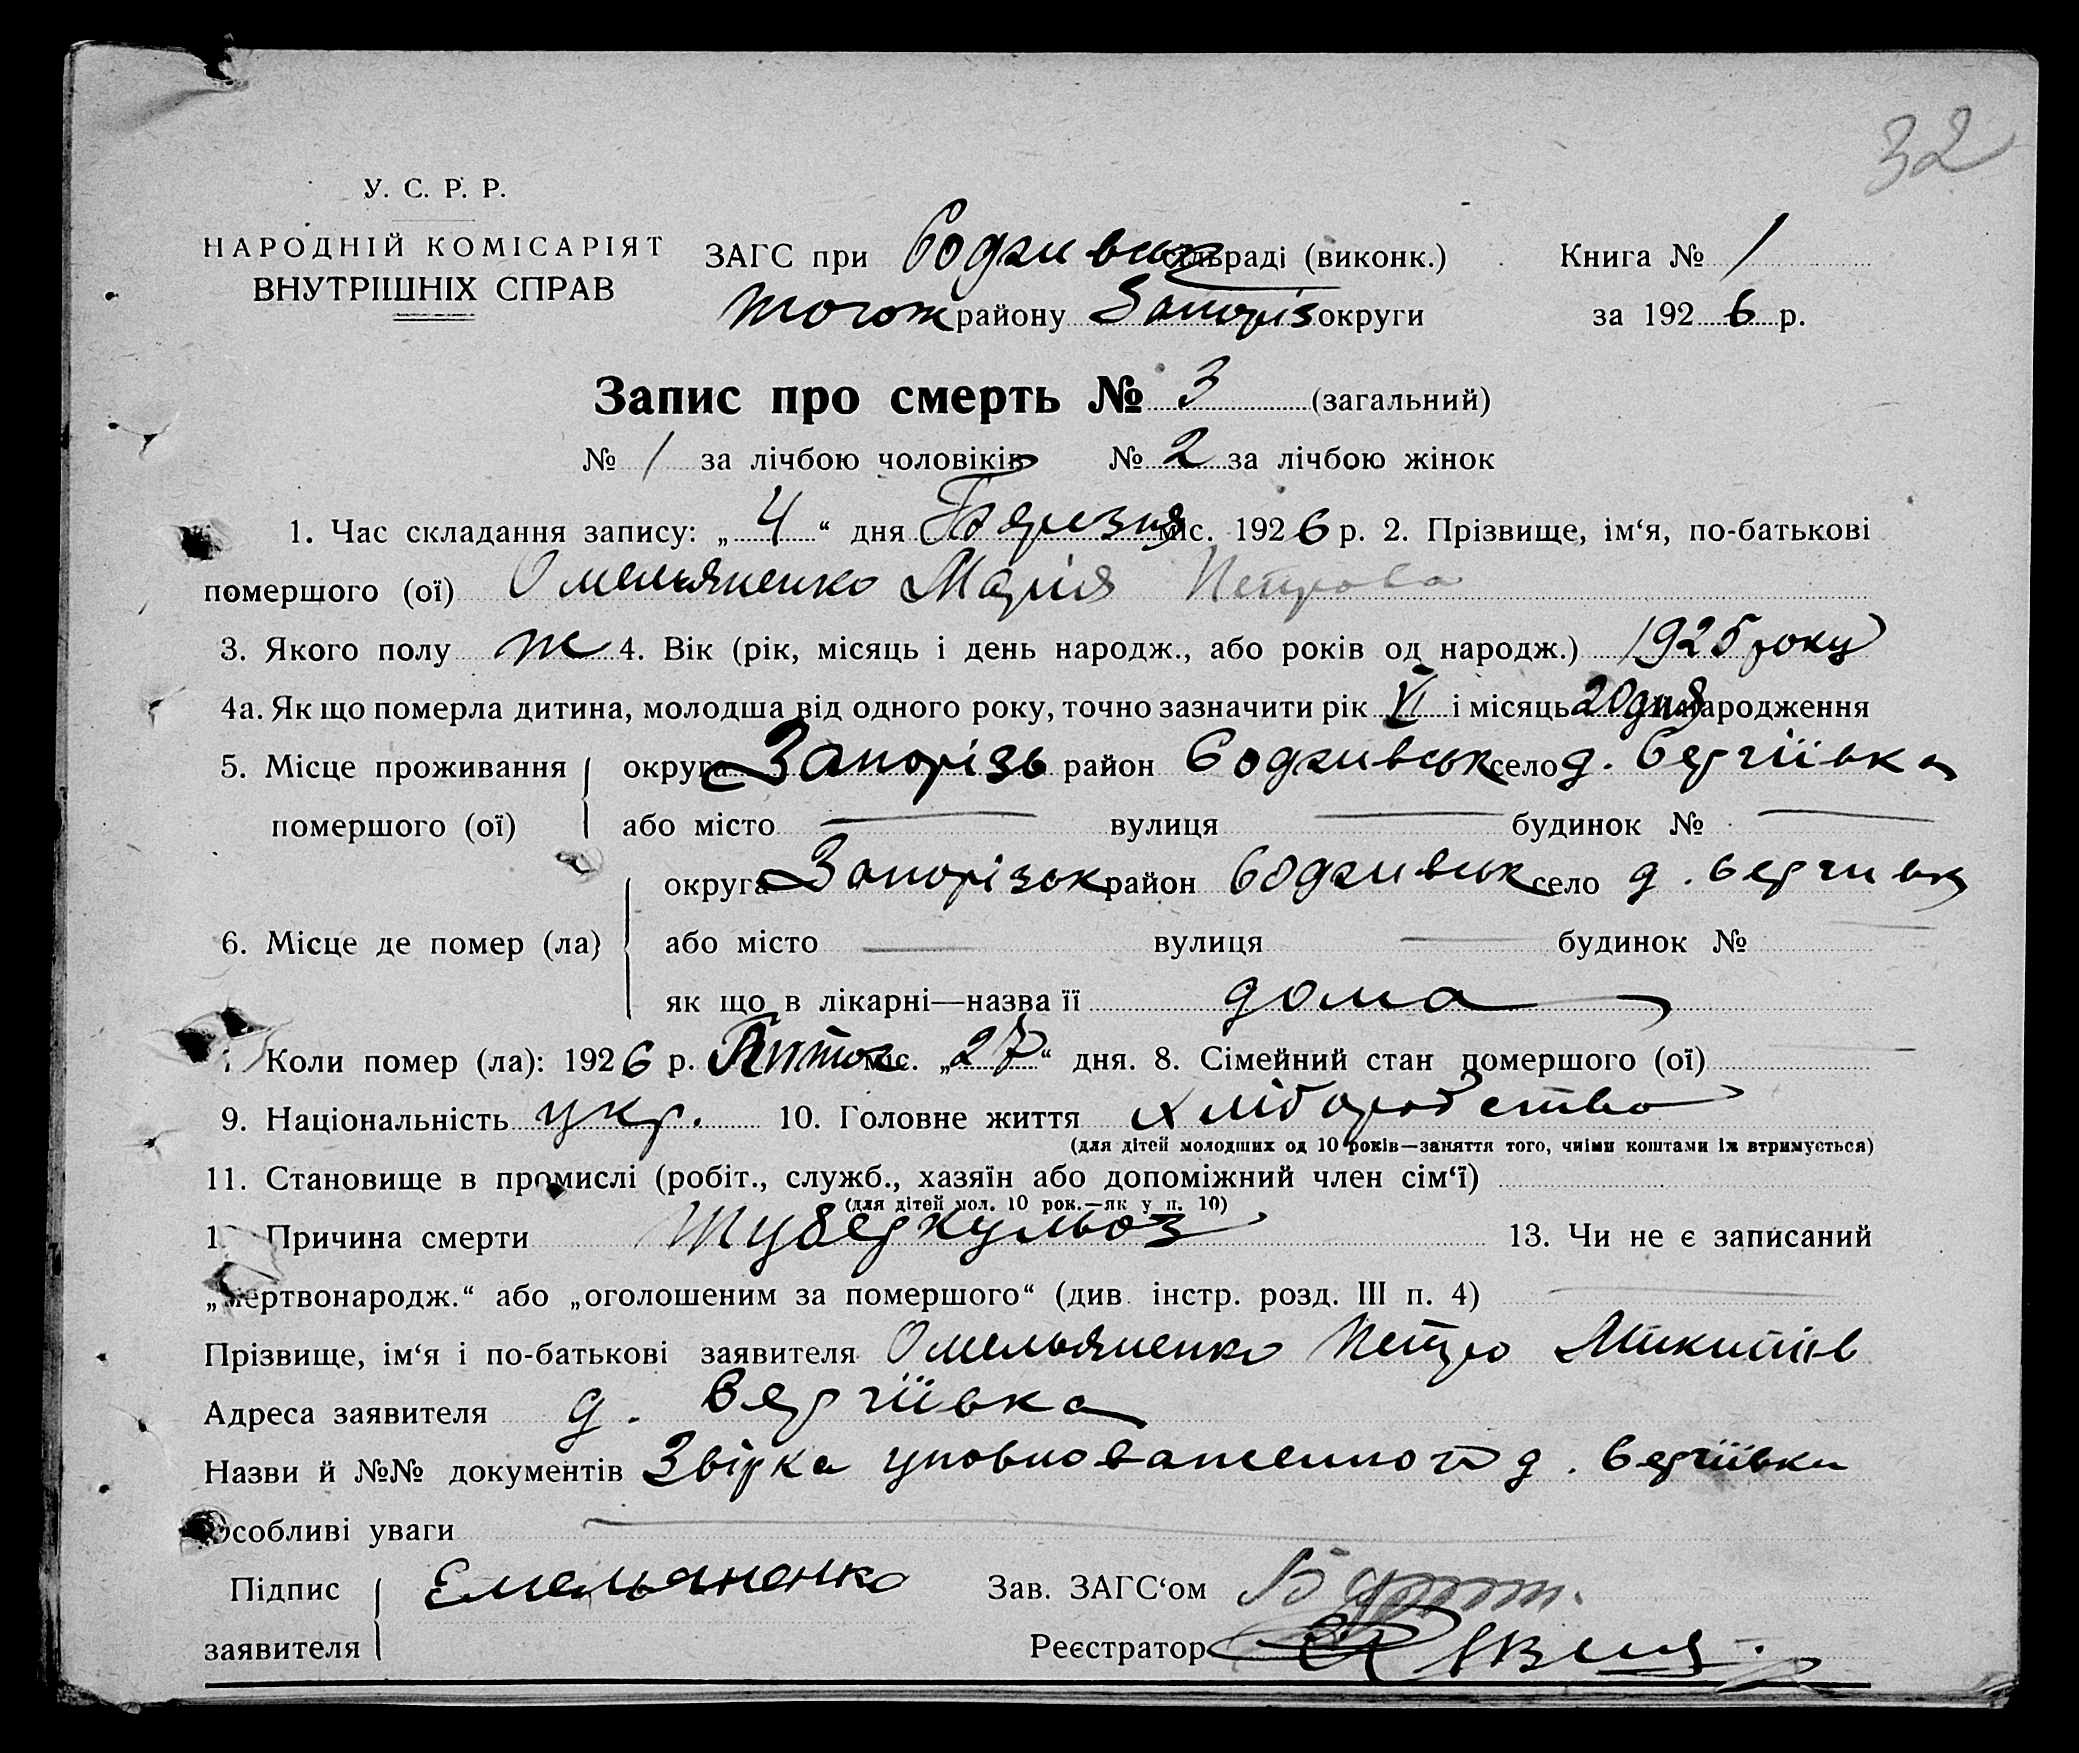 32
У. С. Р. Р.
НАРОДНІЙ КОМІСАРІЯТ
ВНУТРІШНІХ СПРАВ
ЗАГС при сільраді (виконк.)
Книга № 1
тогож району Запоріз округи
за 1926 р.
Запис про смерть № 3 (загальний)
№ 1 за лічбою чоловіків № 2 за лічбою жінок
1. Час складання запису: „4“ дня Березня міс. 1926 р. 2. Прізвище, ім‘я, по-батькові
помершого (ої) Омельяненко Марія Петрова
3. Якого полу ж 4. Вік (рік, місяць і день народж., або років од народж.) 1925 року
4а. Як що померла дитина, молодша від одного року, точно зазначити рік VI і місяць 20 дня народження
5. Місце проживання помершого (ої) округа Запорізь район село д. Сергіївка
або місто — вулиця — будинок № —
6. Місце де помер (ла) округа Запорізок район село д.
або місто — вулиця — будинок № —
як що в лікарні—назва її дома
Коли помер (ла): 1926 р. міс. „27“ дня. 8. Сімейний стан помершого (ої) —
9. Національність укр. 10. Головне життя хліборобство
(для дітей молодших од 10 років—заняття того, чиїми коштами їх втримується)
11. Становище в промислі (робіт., служб., хазяїн або допоміжний член сім‘ї)
(для дітей мол. 10 рок.—як у п. 10)
Причина смерти Туберкульоз 13. Чи не є записаний
„мертвонародж.“ або „оголошеним за помершого“ (див. інстр. розд. III п. 4) —
Прізвище, ім‘я і по-батькові заявителя Омельяненко Петро Микитів
Адреса заявителя д. Сергіївка
Назви й №№ документів Звірка уповноваженного д. Сергіївки
Особливі уваги —
Підпис заявителя Емельяненко
Зав. ЗАГС‘ом
Реєстратор